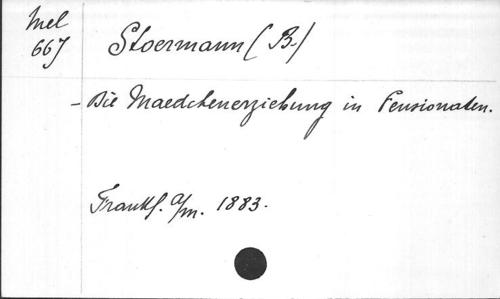 Mel
667
Stoermann (B.)
- Die Maedchenerziehung in Pensionaten.
Frankf. a/m. 1883.